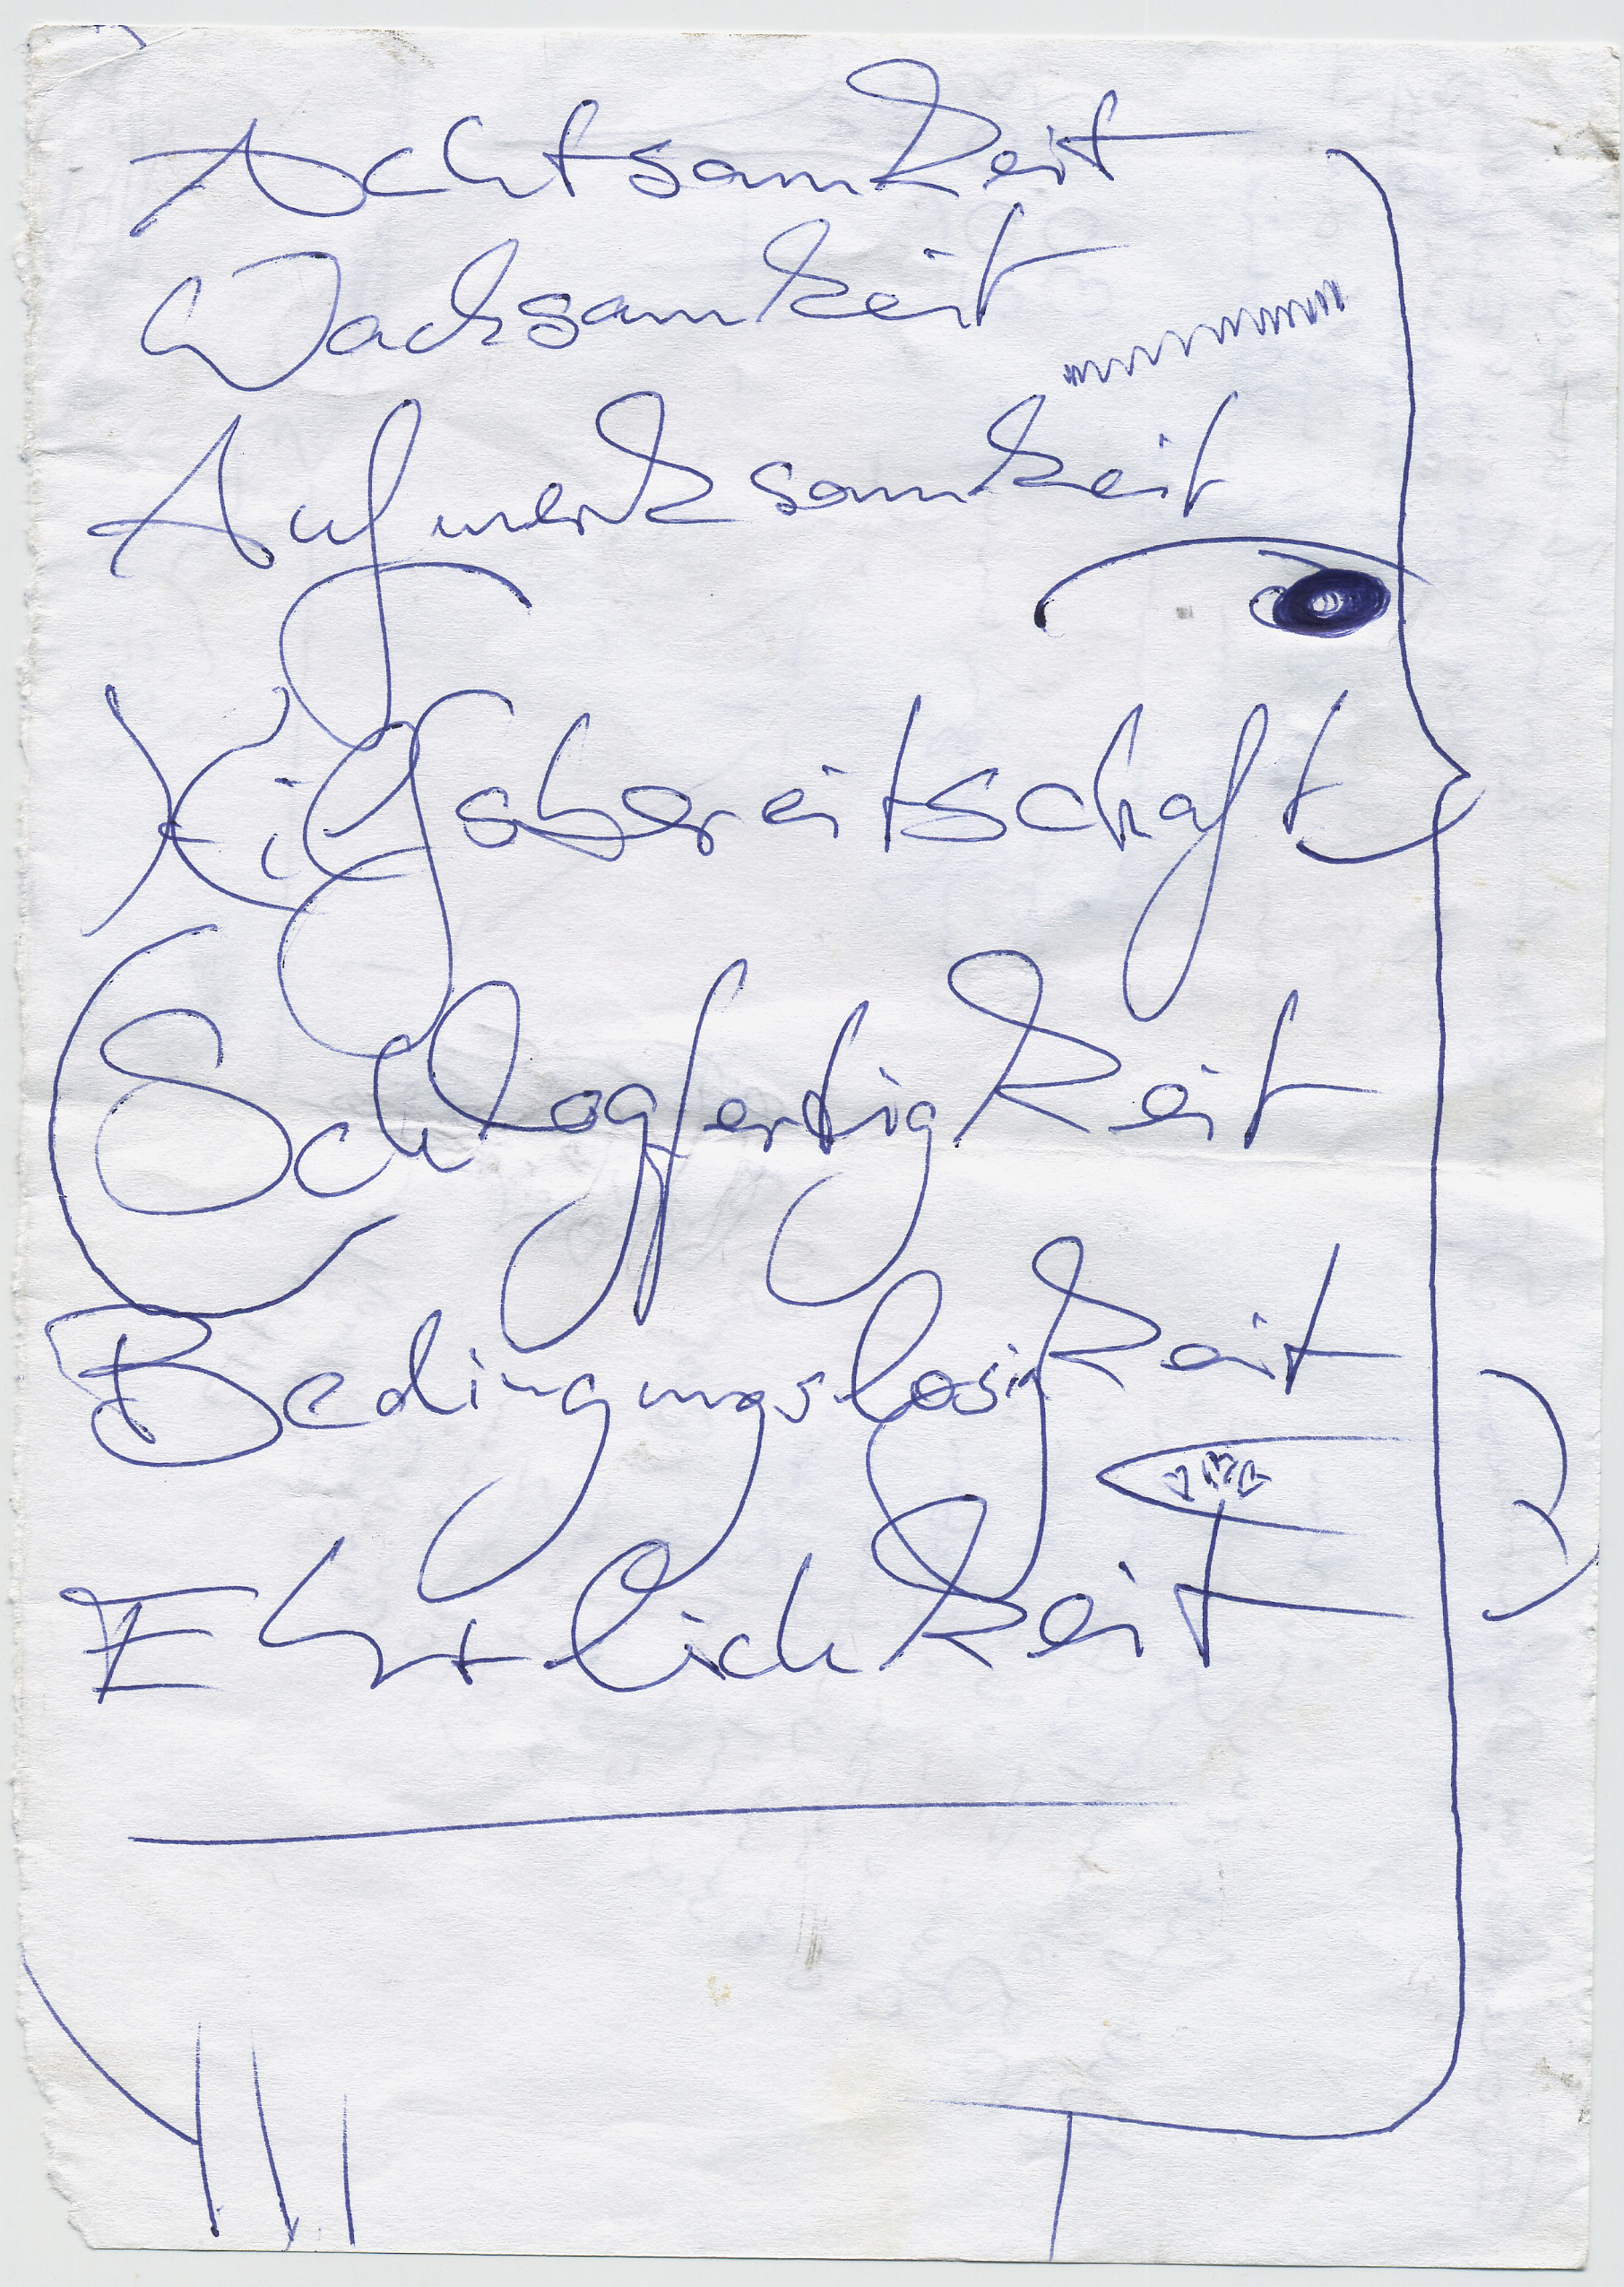 Achtsamkeit
Wachsamkeit
Aufmerksamkeit
Hilfsbereitschaft
Schlagfertigkeit
Bedingungslosigkeit
Ehrlichkeit